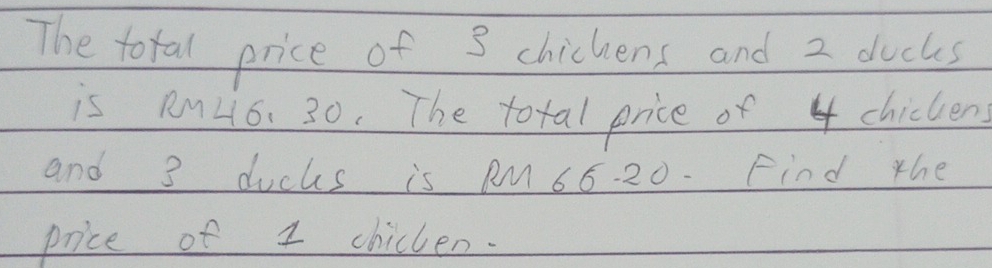 The total price of 3 chickens and 2 ducks
is RM46.30. The total price of 4 chickens
and 3 ducks is RM 66.20. Find the
price of 1 chicken.